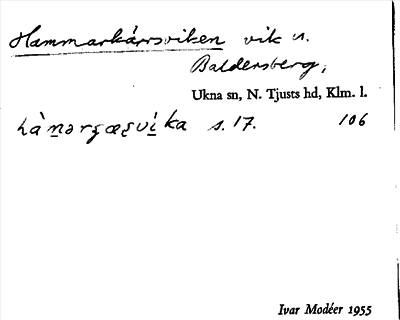 Hammarkärrsviken vik n.
Baldersberg,
Ukna sn, N. Tjusts hd, Klm. l.
s. 17. 106
Ivar Modéer 1955